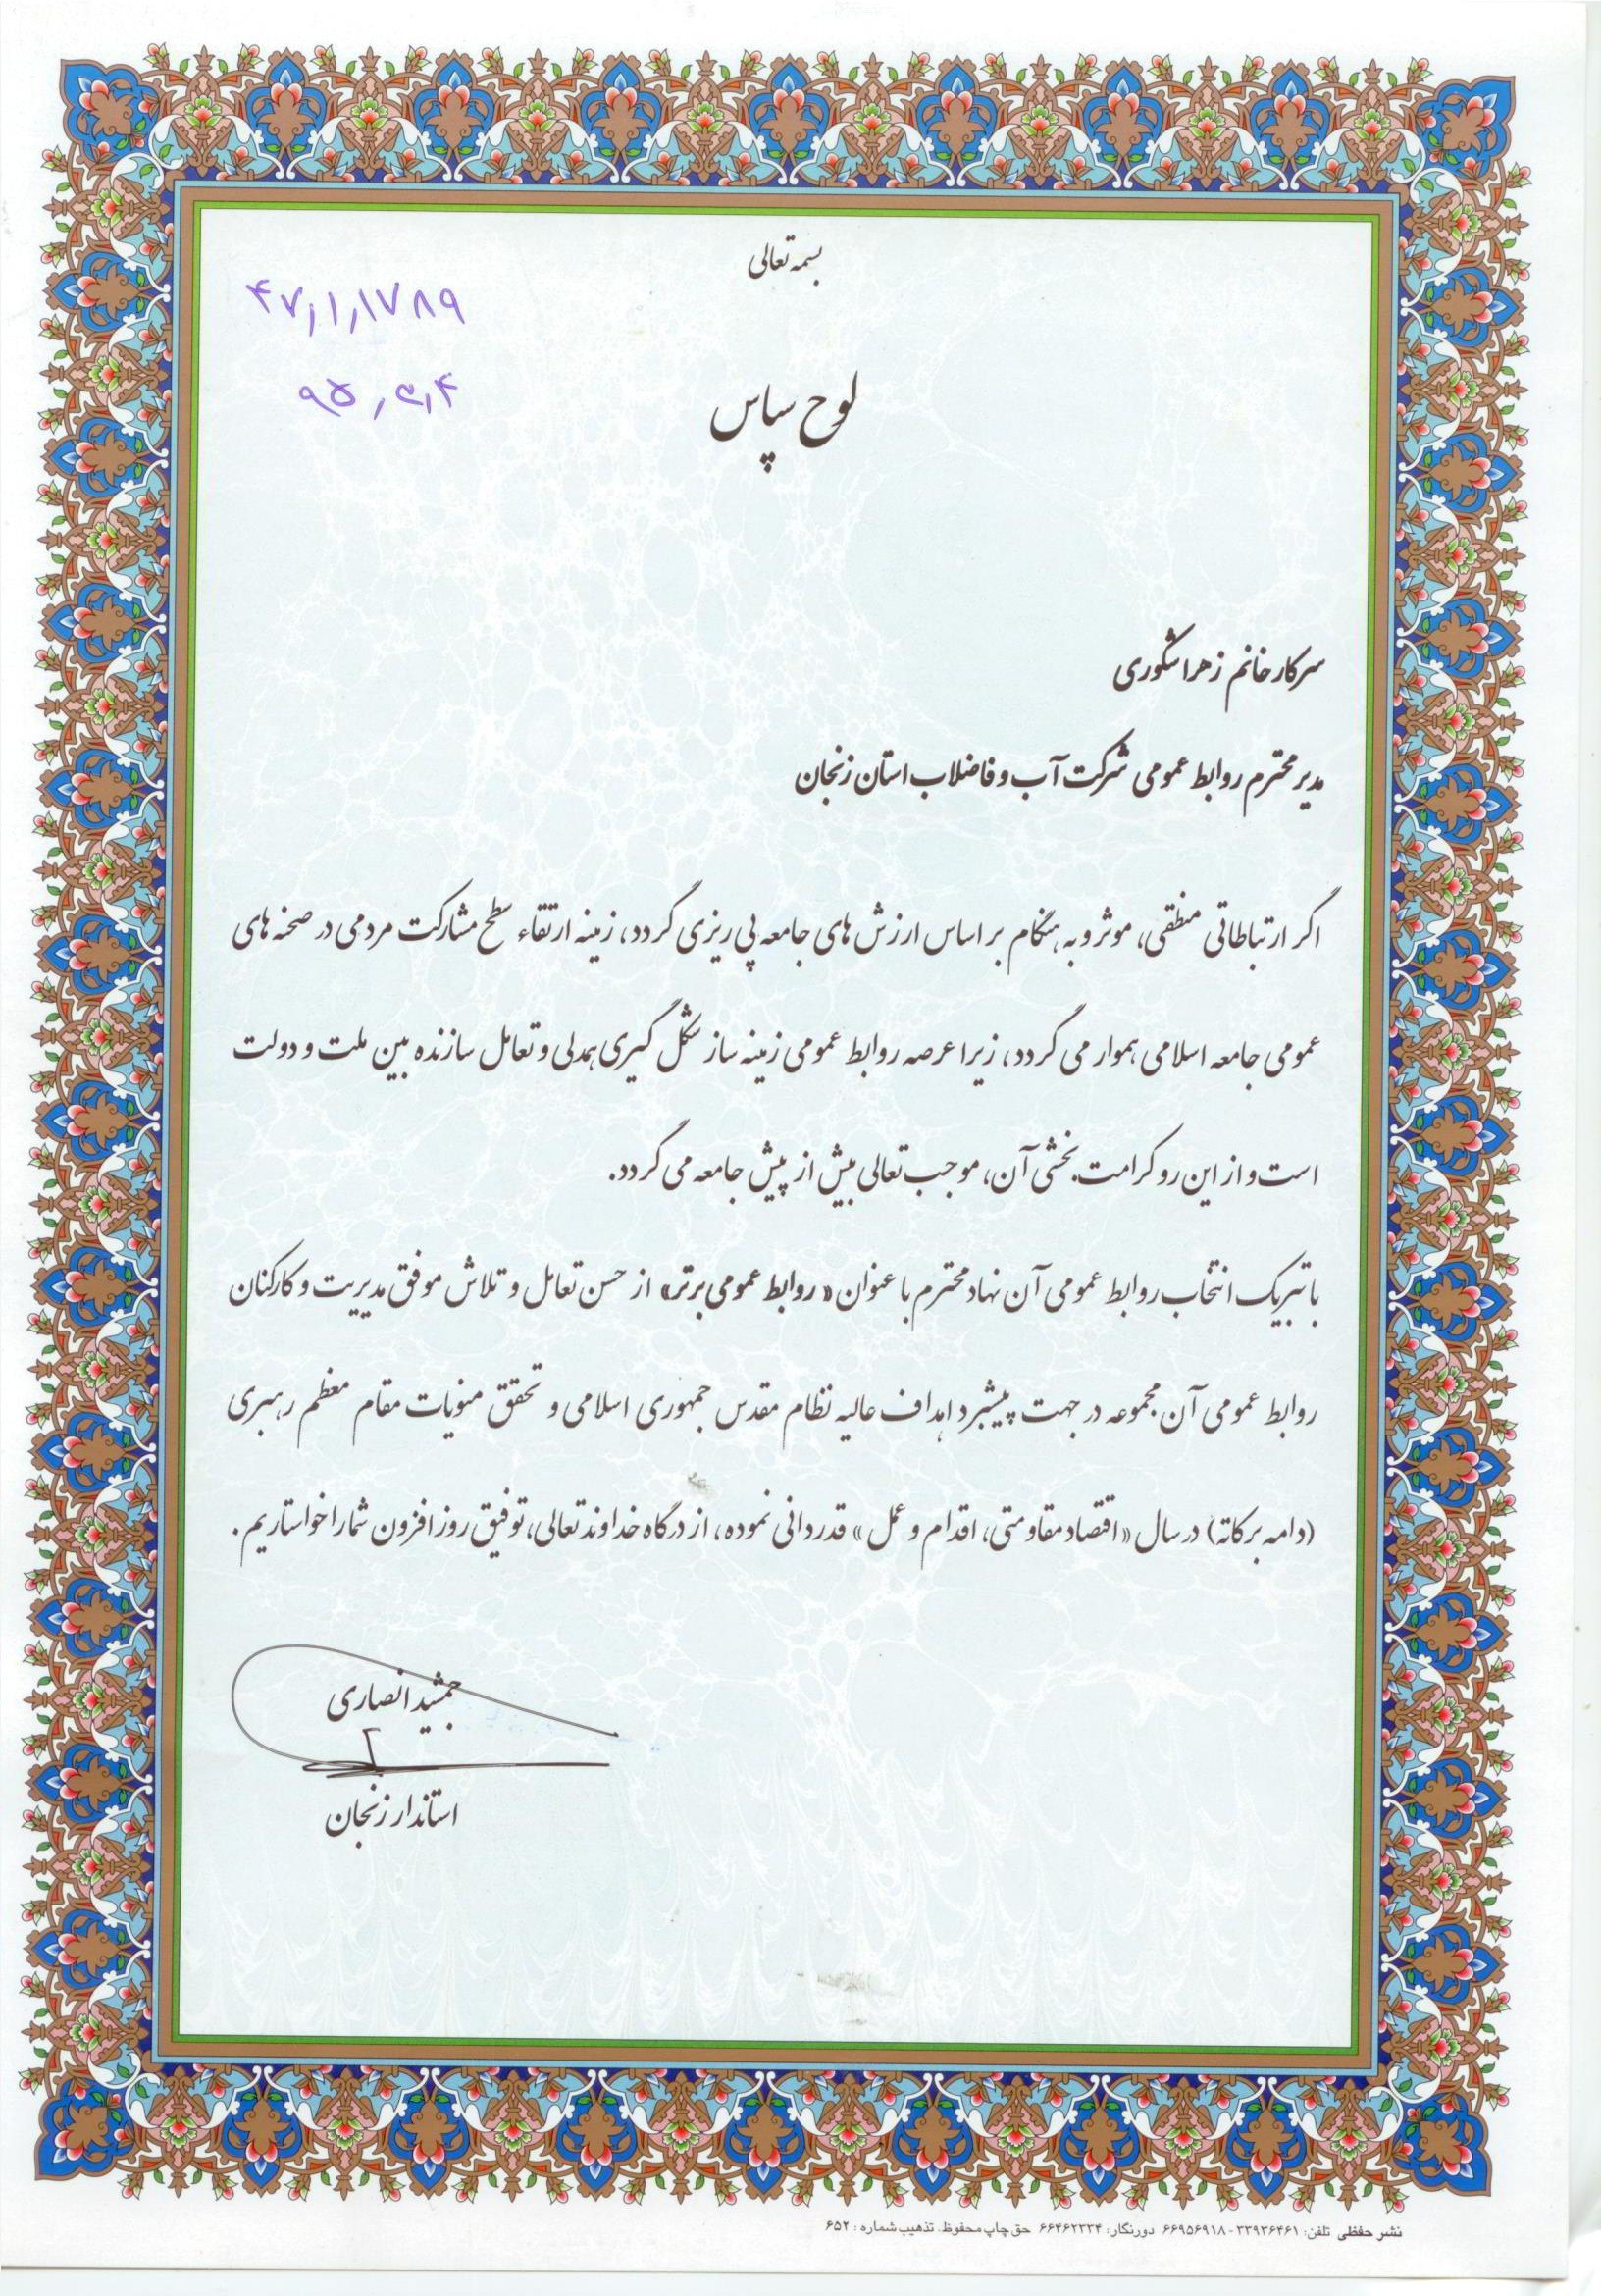 بسمه تعالی
۴۷,۱,۱۷۸۹
۹۵,۳,۴
لوح سپاس
سرکار خانم زهرا شکوری
مدیر محترم روابط عمومی شرکت آب و فاضلاب استان زنجان
اگر ارتباطاتی منطقی، موثر و به هنگام بر اساس ارزش های جامعه پی ریزی گردد، زمینه ارتقاء سطح مشارکت مردمی در صحنه های
عمومی جامعه اسلامی هموار می گردد، زیرا عرصه روابط عمومی زمینه ساز شکل گیری همدلی و تعامل سازنده بین ملت و دولت
است و از این رو کرامت بخشی آن، موجب تعالی بیش از پیش جامعه می گردد.
با تبریک انتخاب روابط عمومی آن نهاد محترم با عنوان «روابط عمومی برتر» از حسن تعامل و تلاش موفق مدیریت و کارکنان
روابط عمومی آن مجموعه در جهت پیشبرد اهداف عالیه نظام مقدس جمهوری اسلامی و تحقق منویات مقام معظم رهبری
(دامه برکاته) در سال «اقتصاد مقاومتی، اقدام و عمل» قدردانی نموده، از درگاه خداوند تعالی، توفیق روز افزون شما را خواستاریم.
جمشید انصاری
استاندار زنجان
نشر حفظی تلفن: ۳۳۹۳۶۴۶۱-۶۶۹۵۶۹۱۸ دورنگار: ۶۶۴۶۲۳۳۴ حق چاپ محفوظ. تذهیب شماره: ۶۵۲